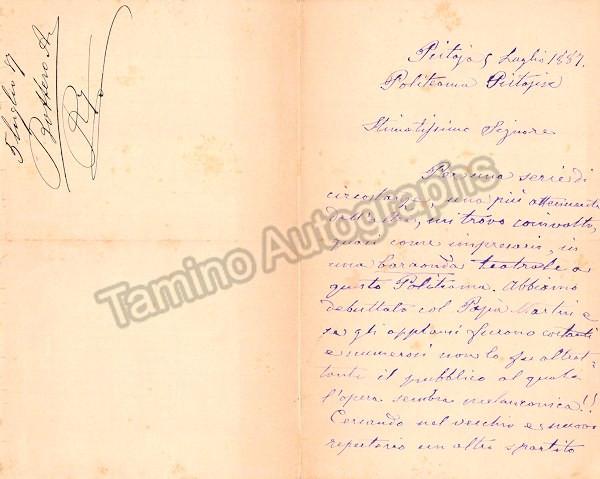 5 Luglio 87
Bottero A.
Pistoja 5 Luglio 1887.
Politeama Pistojese
Stimatissimo Signore
Per una serie di
circostanze, una più attenuante
dell'altra, mi trovo coinvolto,
quasi come impresario, in
una baraonda teatrale a
questo Politeama. Abbiamo
debuttato col Papà Martin e
se gli applausi furono costanti
e numerosi non lo fu altret-
tanto il pubblico al quale
l'opera sembra melanconica!!
Cercando nel vecchio e nuovo
repertorio un altro spartito
Tamino Autographs